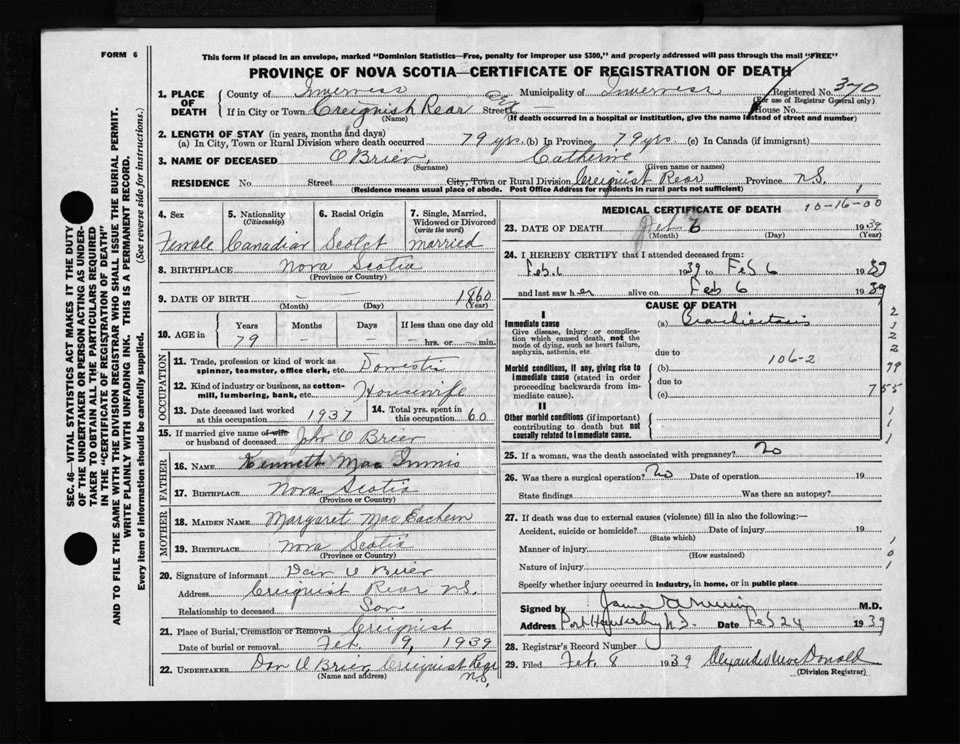 FORM 6
This form if placed in an envelope, marked "Dominion Statistics—Free, penalty for improper use $300," and properly addressed will pass through the mail "FREE"
PROVINCE OF NOVA SCOTIA—CERTIFICATE OF REGISTRATION OF DEATH
1. PLACE OF DEATH County of Inverness Municipality of Inverness Registered No. 370
(For use of Registrar General only)
If in City or Town Creignish Rear Street House No.
(Name) (If death occurred in a hospital or institution, give the name instead of street and number)
2. LENGTH OF STAY (in years, months and days)
(a) In City, Town or Rural Division where death occurred 79 yrs. (b) In Province, 79 yrs. (c) In Canada (if immigrant)
3. NAME OF DECEASED O Brien, Catherine
(Surname) (Given name or names)
RESIDENCE No. Street City, Town or Rural Division Creignist Rear Province N.S.
(Residence means usual place of abode. Post Office Address for residents in rural parts not sufficient) 1
4. Sex 5. Nationality (Citizenship) 6. Racial Origin 7. Single, Married, Widowed or Divorced (write the word)
Female Canadian Scotch married
8. BIRTHPLACE Nova Scotia
(Province or Country)
9. DATE OF BIRTH — — 1860
(Month) (Day) (Year)
10. AGE in Years Months Days If less than one day old
79 — — — hrs. or — min.
OCCUPATION
11. Trade, profession or kind of work as spinner, teamster, office clerk, etc. Domestic
12. Kind of industry or business, as cotton-mill, lumbering, bank, etc. Housewife
13. Date deceased last worked at this occupation 1937 14. Total yrs. spent in this occupation 60
15. If married give name of wife or husband of deceased John O Brien
FATHER
16. NAME Kenneth Mac Innnis
17. BIRTHPLACE Nova Scotia
(Province or Country)
MOTHER
18. MAIDEN NAME Margaret Mac Eachern
19. BIRTHPLACE Nova Scotia
(Province or Country)
20. Signature of informant Dan O Brien
Address Creignist Rear N.S.
Relationship to deceased Son
21. Place of Burial, Cremation or Removal Creignist
Date of burial or removal Feb. 9, 1939
22. UNDERTAKER Dan O Brien, Creignist Rear N.S.
(Name and address)
MEDICAL CERTIFICATE OF DEATH 10-16-00
23. DATE OF DEATH Feb 6 1939
(Month) (Day) (Year)
24. I HEREBY CERTIFY that I attended deceased from:
Feb. 6 1939 to Feb 6 1939
and last saw her alive on Feb 6 1939
CAUSE OF DEATH
I
Immediate cause (a)
Give disease, injury or complication which caused death, not the mode of dying, such as heart failure, asphyxia, asthenia, etc
due to
106-2
Morbid conditions, if any, giving rise to immediate cause (stated in order proceeding backwards from immediate cause). (b)
due to
(c)
II
Other morbid conditions (if important) contributing to death but not causally related to immediate cause.
25. If a woman, was the death associated with pregnancy? No
26. Was there a surgical operation? No Date of operation 19
State findings Was there an autopsy?
27. If death was due to external causes (violence) fill in also the following:—
Accident, suicide or homicide? Date of injury 19
(State which)
Manner of injury
(How sustained)
Nature of injury
Specify whether injury occurred in industry, in home, or in public place
Signed by M.D.
Address Port Hawkesbury N.S. Date Feb 24 1939
28. Registrar's Record Number
29. Filed Feb. 8 1939 Alexander MacDonald
(Division Registrar)
SEC. 46—VITAL STATISTICS ACT MAKES IT THE DUTY
OF THE UNDERTAKER OR PERSON ACTING AS UNDER-
TAKER TO OBTAIN ALL THE PARTICULARS REQUIRED
IN THE "CERTIFICATE OF REGISTRATION OF DEATH"
AND TO FILE THE SAME WITH THE DIVISION REGISTRAR WHO SHALL ISSUE THE BURIAL PERMIT.
WRITE PLAINLY WITH UNFADING INK. THIS IS A PERMANENT RECORD.
Every item of information should be carefully supplied. (See reverse side for instructions.)